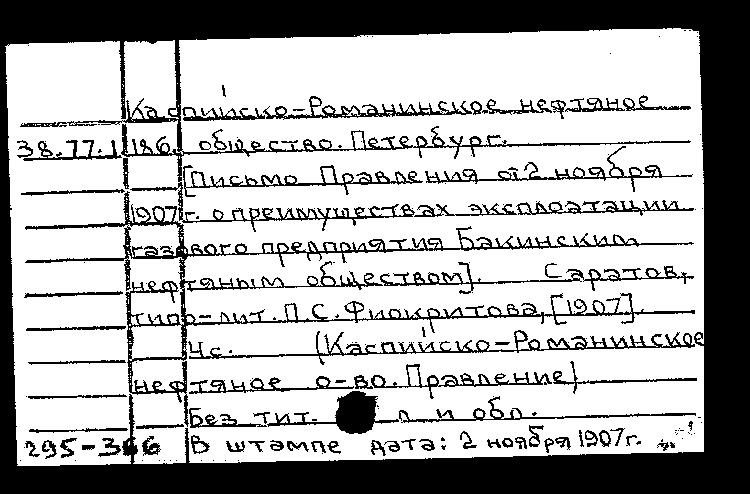 Каспийско-Романинское нефтяное
38.77.1.186. общество. Петербург.
[Письмо Правления от 2 ноября
1907 г. о преимуществах эксплоатации
газового предприятия Бакинским
нефтяным обществом]. Саратов,
типо-лит. П.С. Фиокритова, [1907].
4 с. (Каспийско-Романинское
нефтяное о-во. Правление)
Без тит. л и обл.
295-366 В штампе дата: 2 ноября 1907 г.